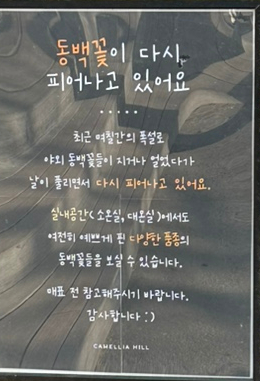 동백꽃이 다시
피어나고 있어요
최근 며칠간의 폭설로
야외 동백꽃들이 지거나 얼었다가
날이 풀리면서 다시 피어나고 있어요.
실내공간(소온실, 대온실)에서도
여전히 예쁘게 핀 다양한 품종의
동백꽃들을 보실 수 있습니다.
매표 전 참고해주시기 바랍니다.
감사합니다 :)
CAMELLIA HILL